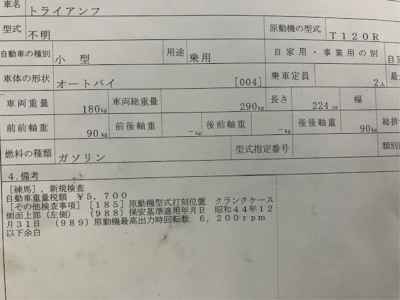 車名 トライアンフ
型式 不明 原動機の型式 T120R
自動車の種別 小型 用途 乗用 自家用・事業用の別 自
車体の形状 オートバイ [004] 乗車定員 2人 最
車両重量 180kg 車両総重量 290kg 長さ 224cm 幅
前前軸重 90kg 前後軸重 -kg 後前軸重 -kg 後後軸重 90kg 総排
燃料の種類 ガソリン 型式指定番号 類別
4.備考
[練馬], 新規検査
自動車重量税額 ¥5,700
[その他検査事項] [185] 原動機型式打刻位置 クランクケース
側面上部(左側) (988) 保安基準適用年月日 昭和44年12
月31日 (989) 原動機最高出力時回転数 6,200rpm
以下余白